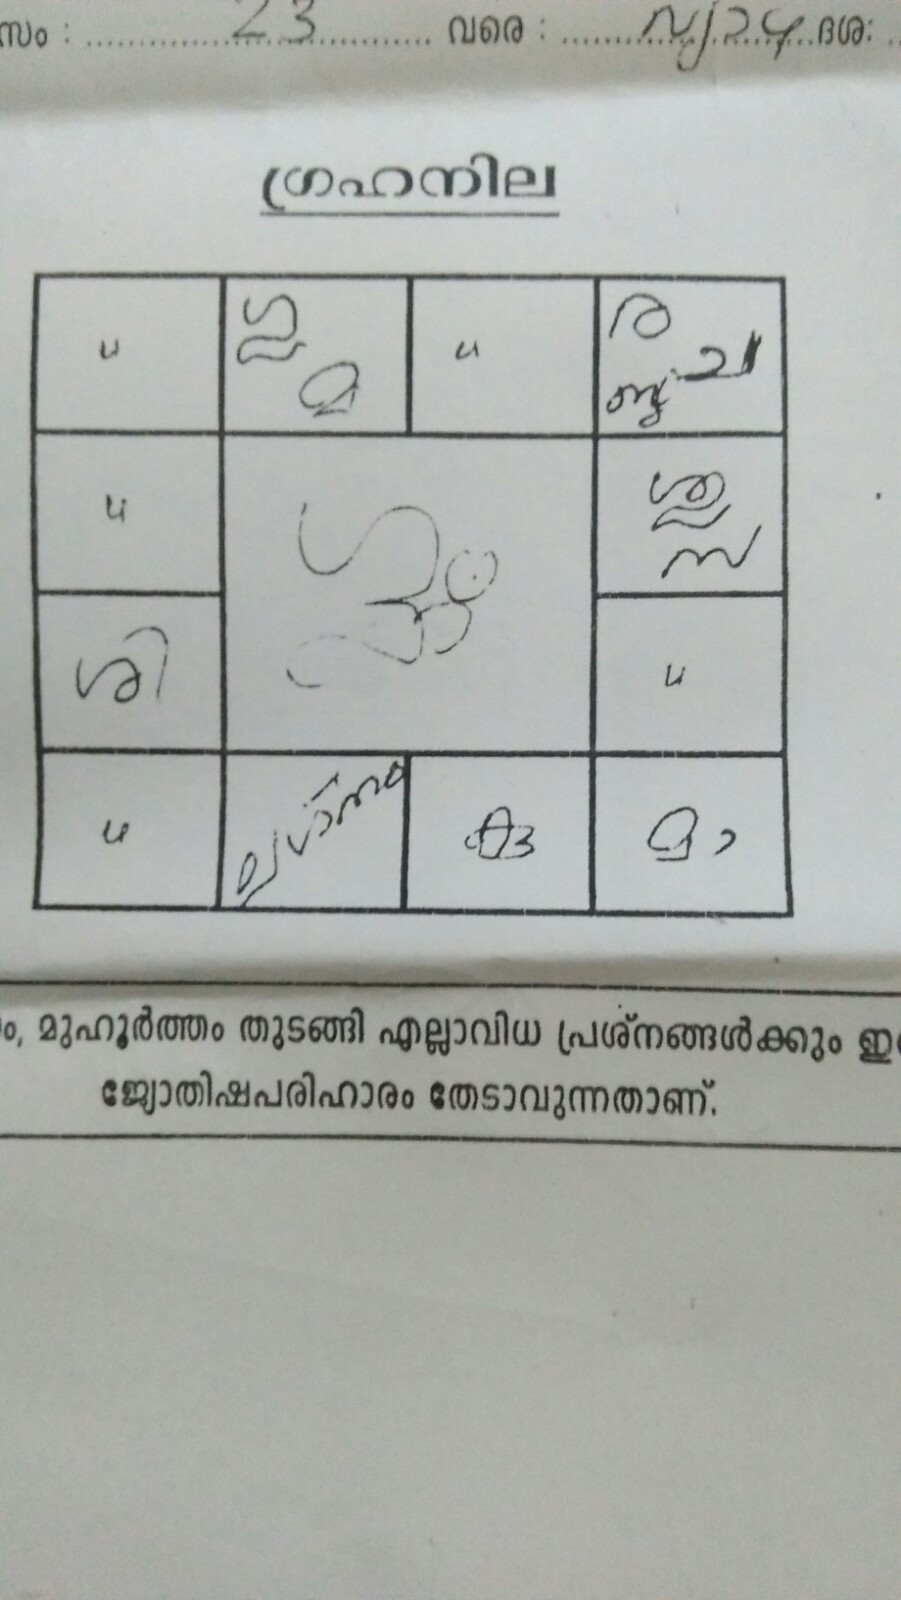 സം : 23 വരെ : വ്യാഴ ദശ:
ഗ്രഹനില
"
മ
"
ര
ച
ബു
"
ശു
സ
ശി
"
"
ലഗ്നം
കു
മാ
മുഹൂർത്തം തുടങ്ങി എല്ലാവിധ പ്രശ്നങ്ങൾക്കും
ജ്യോതിഷപരിഹാരം തേടാവുന്നതാണ്.